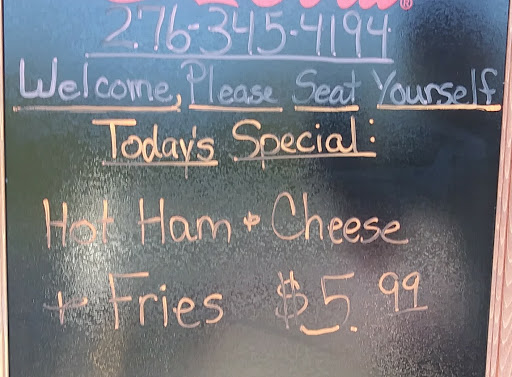 276-345-4194
Welcome, Please Seat Yourself
Today's Special:
Hot Ham + Cheese
+ Fries $5.99